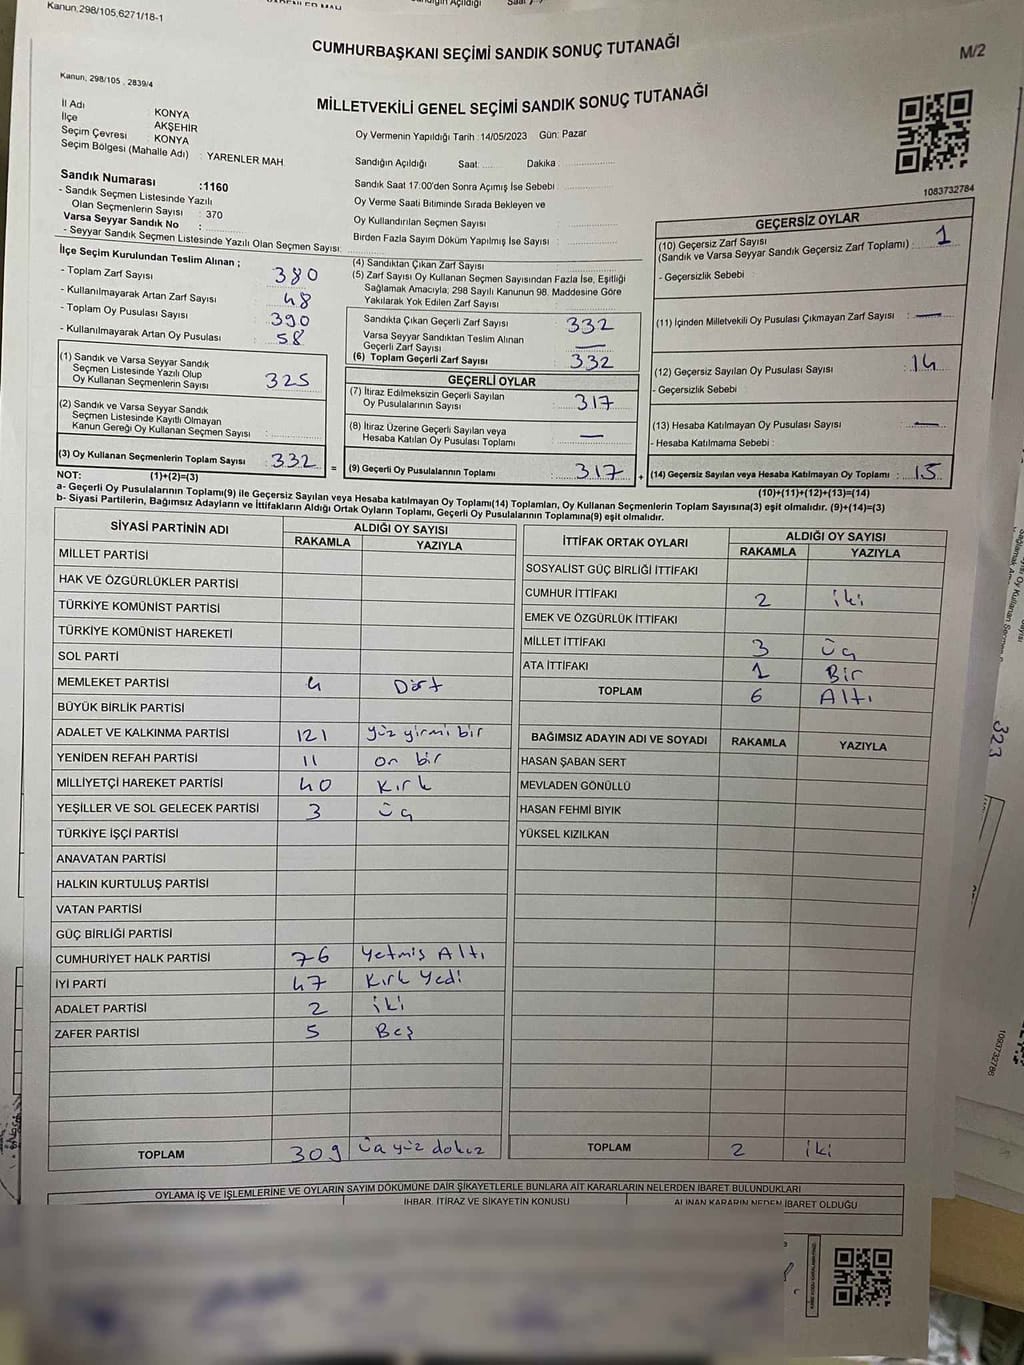 Kanun,298/105,6271/18-1
CUMHURBAŞKANI SEÇİMİ SANDIK SONUÇ TUTANAĞI
M/2
Kanun, 298/105 , 2839/4
MİLLETVEKİLİ GENEL SEÇİMİ SANDIK SONUÇ TUTANAĞI
İl Adı KONYA
İlçe AKŞEHİR
Seçim Çevresi KONYA
Seçim Bölgesi (Mahalle Adı) : YARENLER MAH
Oy Vermenin Yapıldığı Tarih : 14/05/2023 Gün: Pazar
Sandığın Açıldığı Saat: Dakika :
Sandık Saat 17:00'den Sonra Açımış İse Sebebi :
Oy Verme Saati Bitiminde Sırada Bekleyen ve
Oy Kullandırılan Seçmen Sayısı
Birden Fazla Sayım Döküm Yapılmış İse Sayısı :
1083732784
Sandık Numarası :1160
- Sandık Seçmen Listesinde Yazılı
Olan Seçmenlerin Sayısı : 370
Varsa Seyyar Sandık No :
- Seyyar Sandık Seçmen Listesinde Yazılı Olan Seçmen Sayısı:
İlçe Seçim Kurulundan Teslim Alınan ;
- Toplam Zarf Sayısı 380
- Kullanılmayarak Artan Zarf Sayısı 48
- Toplam Oy Pusulası Sayısı 390
- Kullanılmayarak Artan Oy Pusulası 58
(1) Sandık ve Varsa Seyyar Sandık
Seçmen Listesinde Yazılı Olup
Oy Kullanan Seçmenlerin Sayısı 325
(2) Sandık ve Varsa Seyyar Sandık
Seçmen Listesinde Kayıtlı Olmayan
Kanun Gereği Oy Kullanan Seçmen Sayısı :
(3) Oy Kullanan Seçmenlerin Toplam Sayısı : 332
(4) Sandıktan Çıkan Zarf Sayısı :
(5) Zarf Sayısı Oy Kullanan Seçmen Sayısından Fazla İse, Eşitliği
Sağlamak Amacıyla, 298 Sayılı Kanunun 98. Maddesine Göre
Yakılarak Yok Edilen Zarf Sayısı :
Sandıkta Çıkan Geçerli Zarf Sayısı : 332
Varsa Seyyar Sandıktan Teslim Alınan
Geçerli Zarf Sayısı : —
(6) Toplam Geçerli Zarf Sayısı : 332
GEÇERLİ OYLAR
(7) İtiraz Edilmeksizin Geçerli Sayılan
Oy Pusulalarının Sayısı : 317
(8) İtiraz Üzerine Geçerli Sayılan veya
Hesaba Katılan Oy Pusulası Toplamı : —
= (9) Geçerli Oy Pusulalarının Toplamı : 317
GEÇERSİZ OYLAR
(10) Geçersiz Zarf Sayısı
(Sandık ve Varsa Seyyar Sandık Geçersiz Zarf Toplamı) : 1
- Geçersizlik Sebebi :
(11) İçinden Milletvekili Oy Pusulası Çıkmayan Zarf Sayısı : —
(12) Geçersiz Sayılan Oy Pusulası Sayısı : 14
- Geçersizlik Sebebi :
(13) Hesaba Katılmayan Oy Pusulası Sayısı : —
- Hesaba Katılmama Sebebi :
+ (14) Geçersiz Sayılan veya Hesaba Katılmayan Oy Toplamı : 15
NOT: (1)+(2)=(3)
(10)+(11)+(12)+(13)=(14)
a- Geçerli Oy Pusulalarının Toplamı(9) ile Geçersiz Sayılan veya Hesaba katılmayan Oy Toplamı(14) Toplamları, Oy Kullanan Seçmenlerin Toplam Sayısına(3) eşit olmalıdır. (9)+(14)=(3)
b- Siyasi Partilerin, Bağımsız Adayların ve İttifakların Aldığı Ortak Oyların Toplamı, Geçerli Oy Pusulalarının Toplamına(9) eşit olmalıdır.
SİYASİ PARTİNİN ADI ALDIĞI OY SAYISI
RAKAMLA YAZIYLA
MİLLET PARTİSİ
HAK VE ÖZGÜRLÜKLER PARTİSİ
TÜRKİYE KOMÜNİST PARTİSİ
TÜRKİYE KOMÜNİST HAREKETİ
SOL PARTİ
MEMLEKET PARTİSİ 4 Dört
BÜYÜK BİRLİK PARTİSİ
ADALET VE KALKINMA PARTİSİ 121 yüz yirmi bir
YENİDEN REFAH PARTİSİ 11 on bir
MİLLİYETÇİ HAREKET PARTİSİ 40 Kırk
YEŞİLLER VE SOL GELECEK PARTİSİ 3 üç
TÜRKİYE İŞÇİ PARTİSİ
ANAVATAN PARTİSİ
HALKIN KURTULUŞ PARTİSİ
VATAN PARTİSİ
GÜÇ BİRLİĞİ PARTİSİ
CUMHURİYET HALK PARTİSİ 76 Yetmiş Altı
İYİ PARTİ 47 Kırk Yedi
ADALET PARTİSİ 2 iki
ZAFER PARTİSİ 5 Beş
TOPLAM 309 üç yüz dokuz
İTTİFAK ORTAK OYLARI ALDIĞI OY SAYISI
RAKAMLA YAZIYLA
SOSYALİST GÜÇ BİRLİĞİ İTTİFAKI
CUMHUR İTTİFAKI 2 iki
EMEK VE ÖZGÜRLÜK İTTİFAKI
MİLLET İTTİFAKI 3 üç
ATA İTTİFAKI 1 Bir
TOPLAM 6 Altı
BAĞIMSIZ ADAYIN ADI VE SOYADI RAKAMLA YAZIYLA
HASAN ŞABAN SERT
MEVLADEN GÖNÜLLÜ
HASAN FEHMİ BIYIK
YÜKSEL KIZILKAN
TOPLAM 2 iki
OYLAMA İŞ VE İŞLEMLERİNE VE OYLARIN SAYIM DÖKÜMÜNE DAİR ŞİKAYETLERLE BUNLARA AİT KARARLARIN NELERDEN İBARET BULUNDUKLARI
İHBAR, İTİRAZ VE ŞİKAYETİN KONUSU ALINAN KARARIN NEDEN İBARET OLDUĞU
323
1093732786